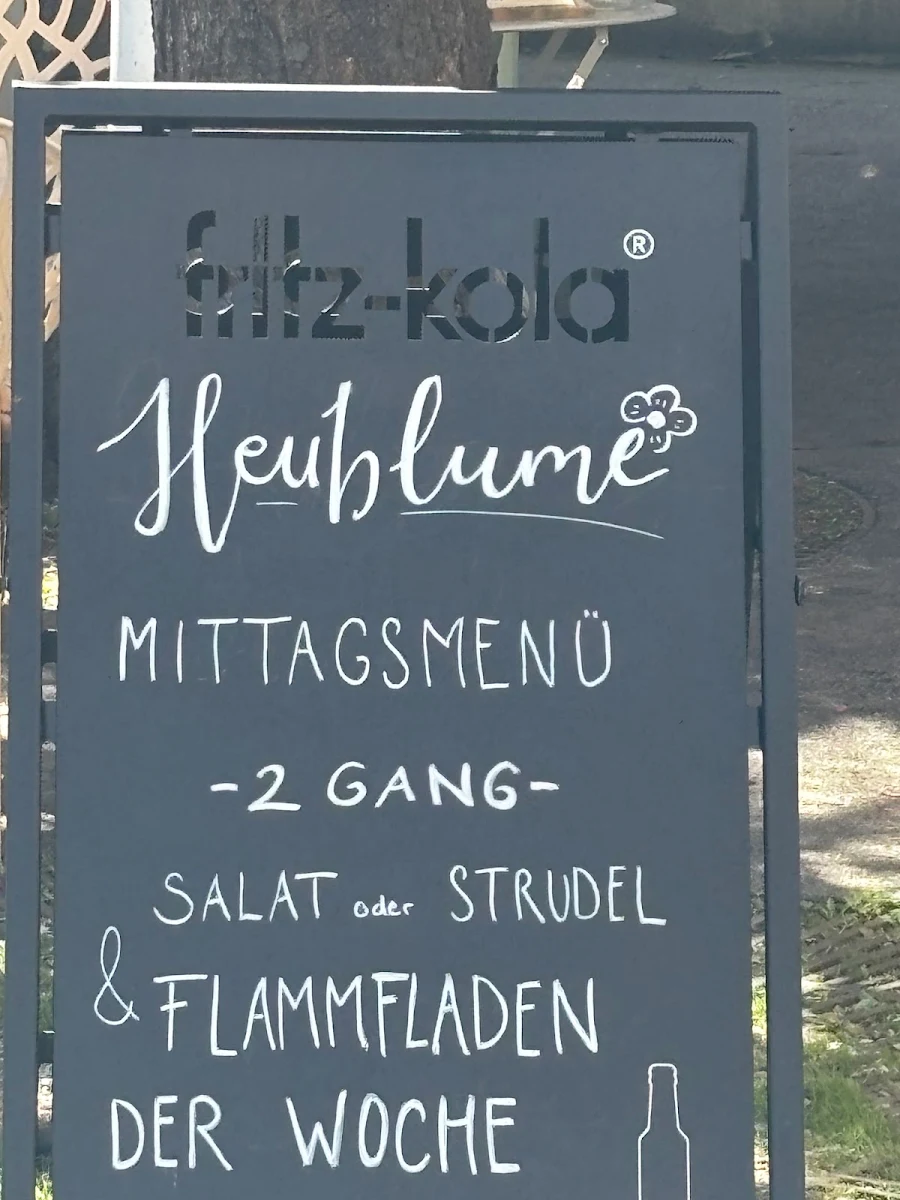 fritz-kola®
Heublume
MITTAGSMENÜ
-2 GANG-
SALAT oder STRUDEL
& FLAMMFLADEN
DER WOCHE